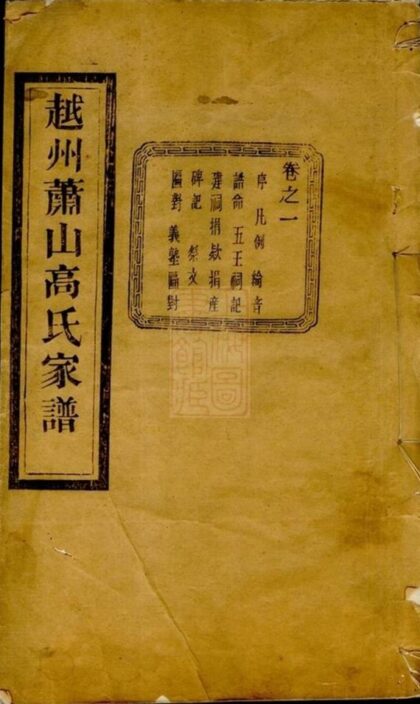 越州蕭山高氏家譜
卷之一
序 凡例 綸音
誥命 五王祠記
建祠捐款捐產
碑記 祭文
匾對 義塾匾對